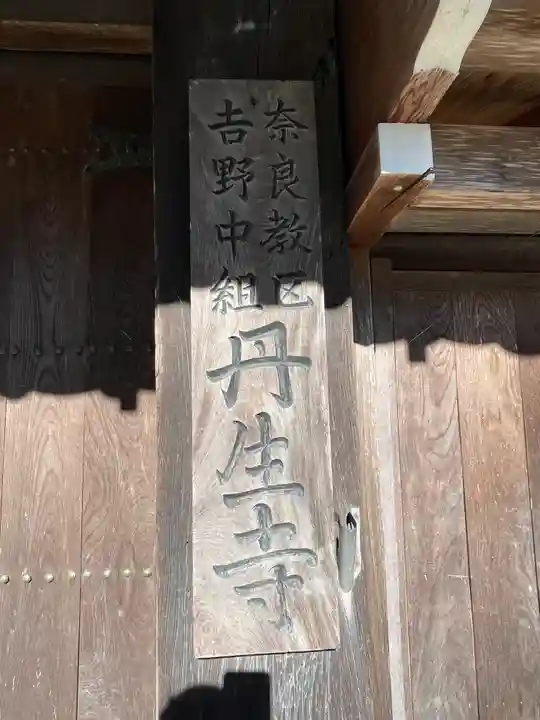 奈良教区
𠮷野中組
丹生寺